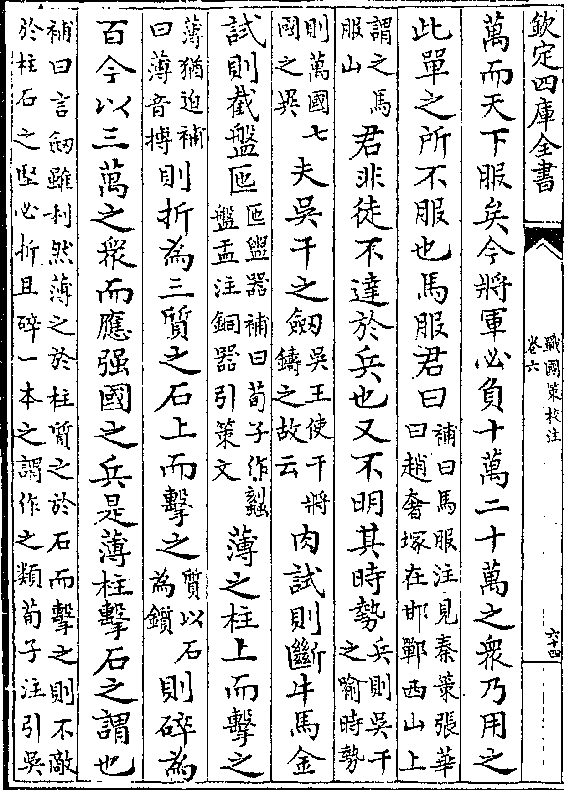 欽定四庫全書
戰國策校注
卷六
六十四
萬而天下服矣今將軍必負十萬二十萬之衆乃用之
此單之所不服也馬服君曰
補曰馬服注見秦策張華
曰趙奢塚在邯鄲西山上
謂之馬
服山
君非徒不達於兵也又不明其時勢
兵則吳干
之喻時勢
則萬國七
國之異
夫吳干之劒
吳王使干將
鑄之故云
肉試則斷牛馬金
試則截盤匜
匜盥器補曰荀子作
盤盂注銅器引策文
薄之柱上而擊之
薄猶迫補
曰薄音搏
則折為三質之石上而擊之
質以石
為鑕
則碎為
百今以三萬之衆而應强國之兵是薄柱擊石之謂也
補曰言劒雖利然薄之於柱質之於石而擊之則不敵
於柱石之堅必折且碎一本之謂作之類荀子注引吳